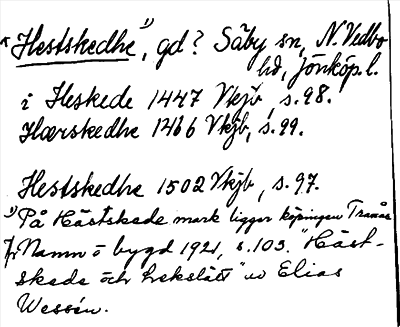 * Hestskedhe ¹⁾, gd? Säby sn, N. Vedbo
hd, Jönköp. l.
i Heskede 1447 Vkjb, s. 98.
Hærskedhe 1466 Vkjb, s. 99.
Hestskedhe 1502 Vkjb, s. 97.
¹⁾ På Hästskede mark ligger köpingen Tranås
Jfr Namn o bygd 1921, s. 103. "Häst-
skede och Lekslätt" av Elias
Wessén.